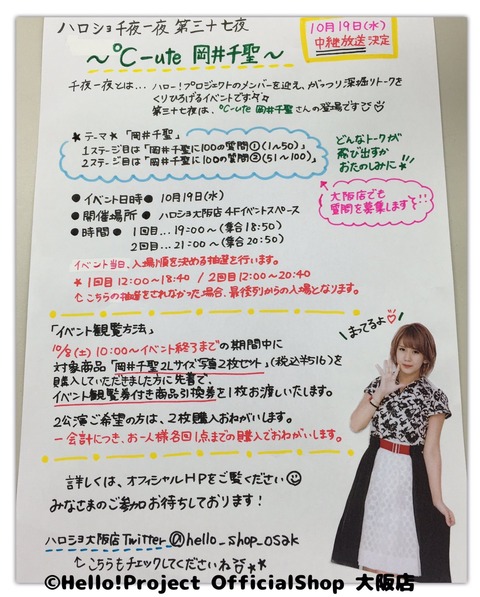 ハロショ千夜一夜 第三十七夜
～℃-ute 岡井千聖～
10月19日(水)
中継放送決定
千夜一夜とは… ハロー!プロジェクトのメンバーを迎え、がっつり深堀りトークを
くりひろげるイベントです
第三十七夜は、℃-ute 岡井千聖さんの登場です
★テーマ★「岡井千聖」
1ステージ目は「岡井千聖に100の質問①(1～50)」
2ステージ目は「岡井千聖に100の質問②(51～100)」
どんなトークが
飛び出すか
おたのしみに!!
大阪店でも
質問を募集します!!
●イベント日時● 10月19日(水)
●開催場所● ハロショ大阪店 4Fイベントスペース
●時間● 1回目…19:00～(集合18:50)
2回目…21:00～(集合20:50)
イベント当日、入場順を決める抽選を行います。
★1回目12:00～18:40 / 2回目12:00～20:40
こちらの抽選をされなかった場合、最後列からの入場となります。
「イベント観覧方法」
10/8(土)10:00～イベント終了までの期間中に
対象商品「岡井千聖2Lサイズ写真2枚セット」(税込¥516)を
購入していただきました方に先着で、
イベント観覧券付き商品引換券を1枚お渡しいたします。
2公演ご希望の方は、2枚購入おねがいします。
一会計につき、お一人様各回1点までの購入でおねがいします。
まってるよ
詳しくは、オフィシャルHPをご覧ください
みなさまのご参加お待ちしております!
ハロショ大阪店Twitter @hello_shop_osak
こちらもチェックしてくださいね
©Hello!Project OfficialShop 大阪店